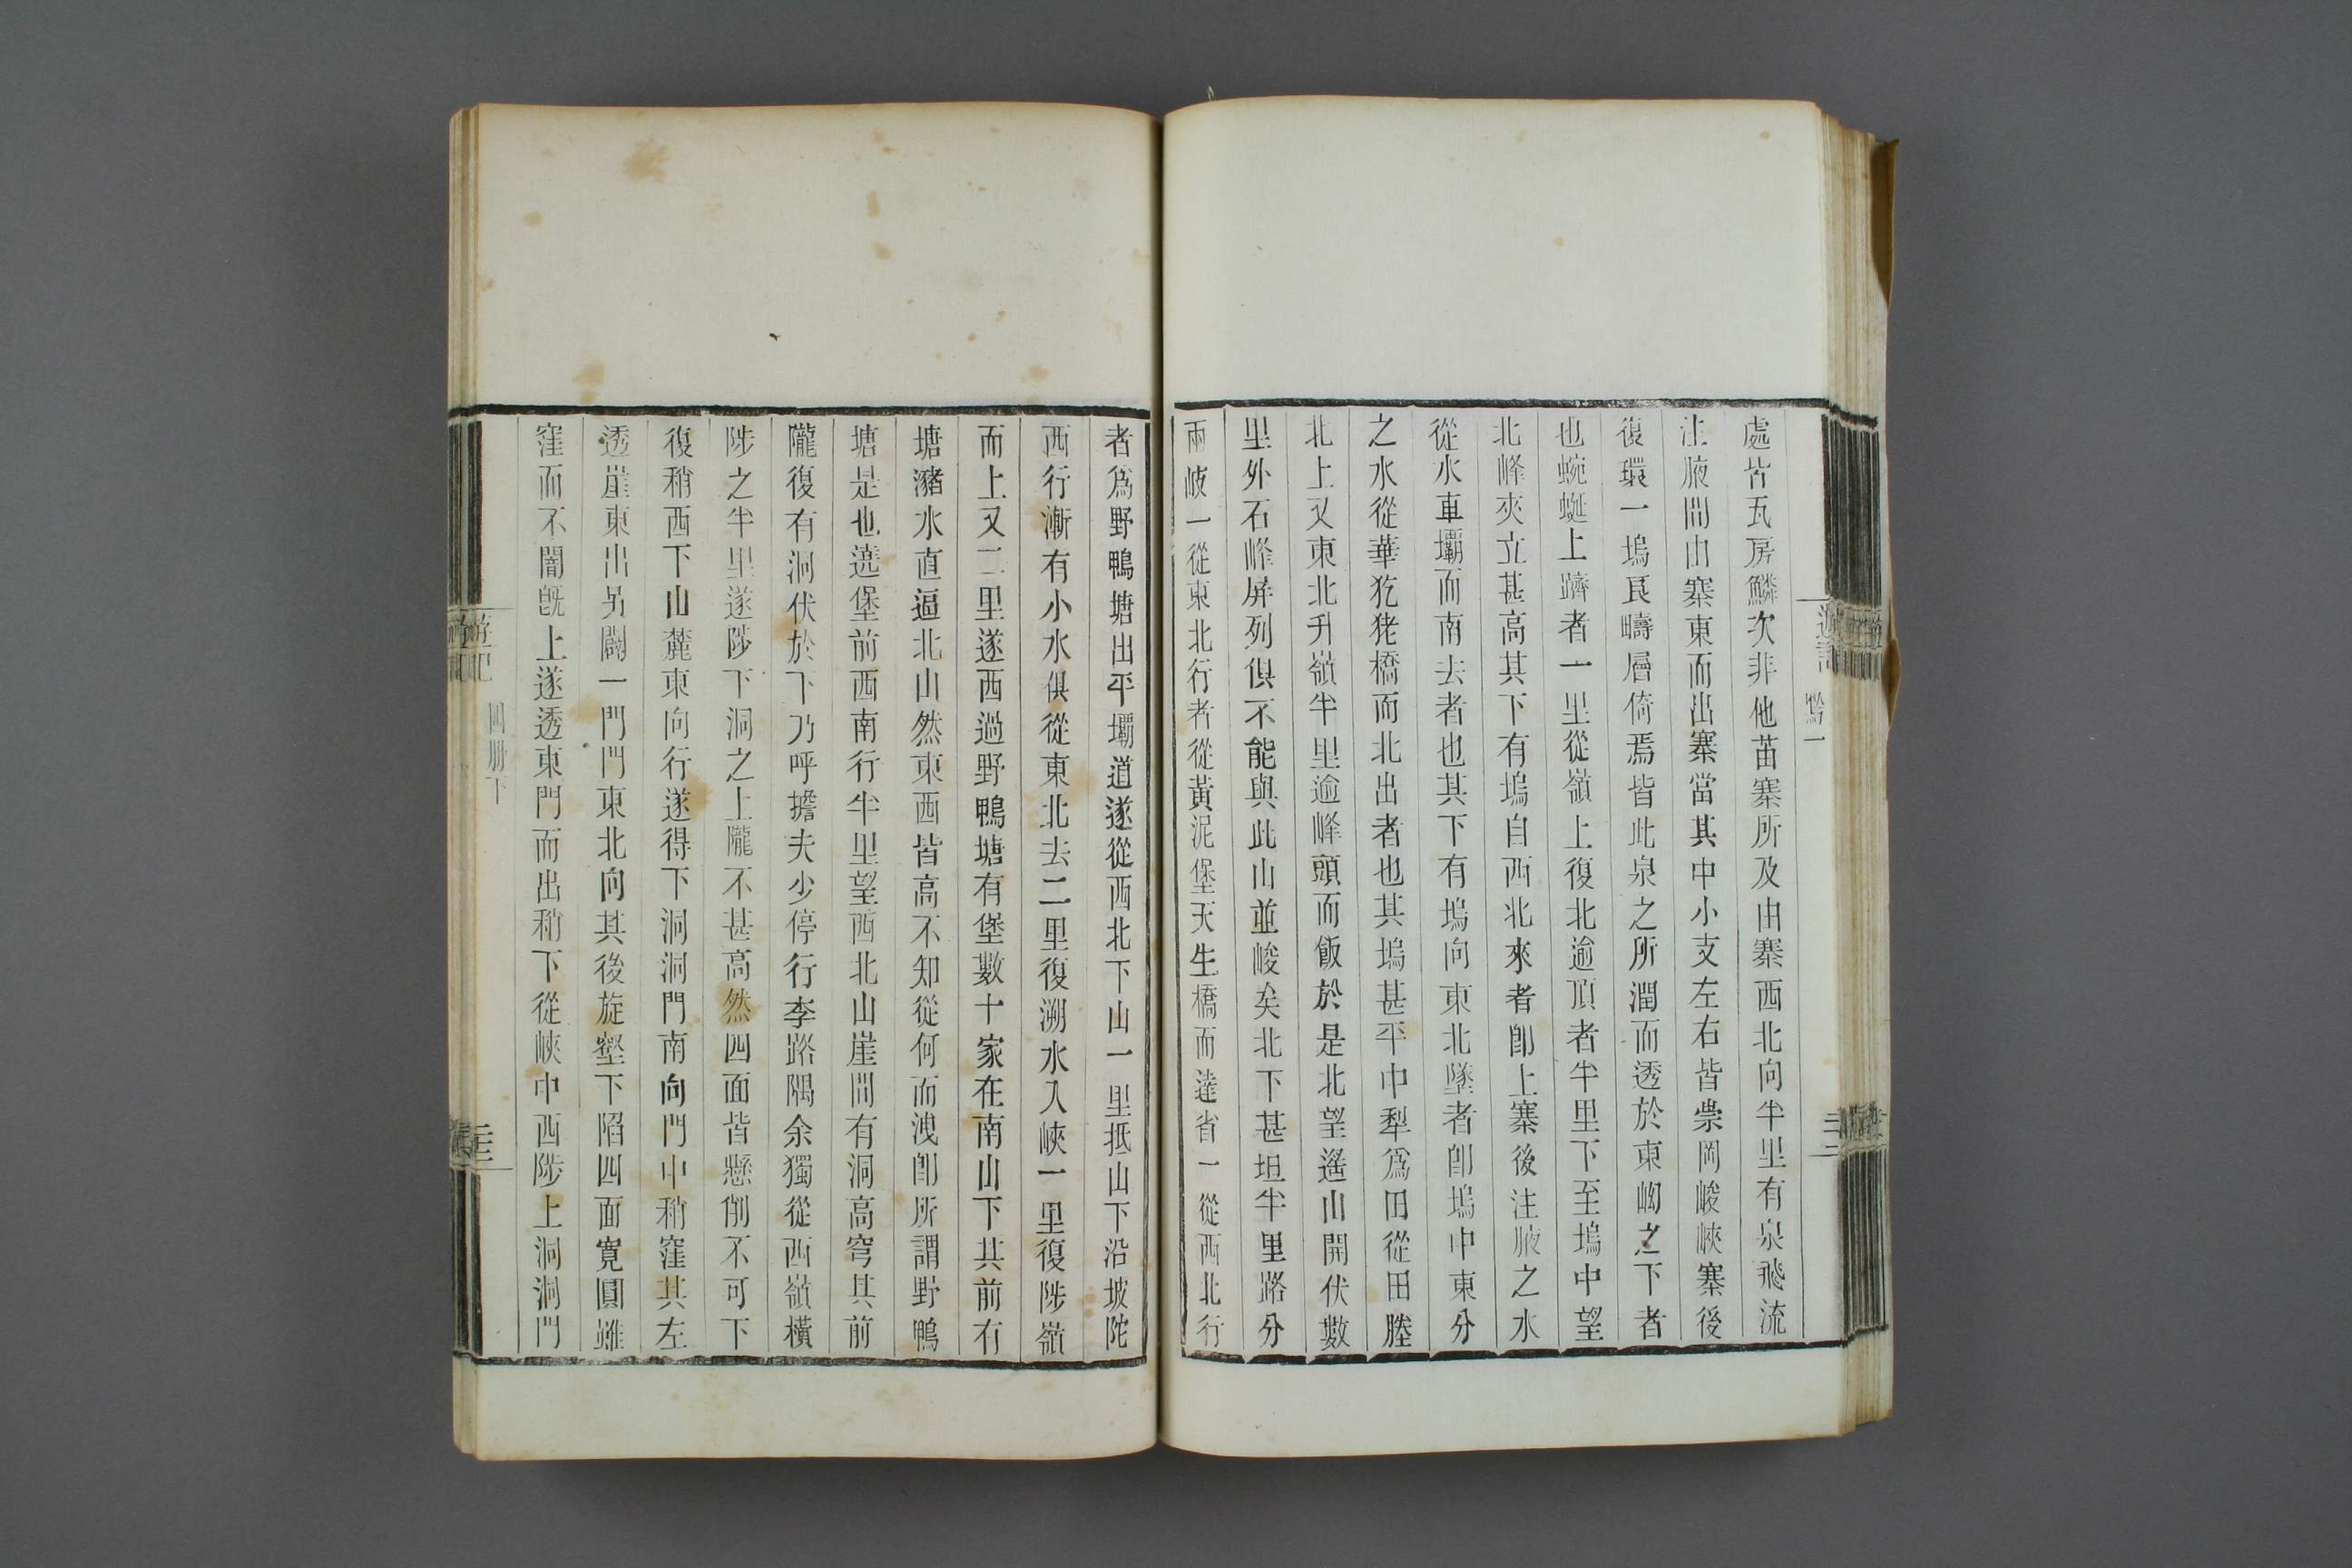 處皆瓦房鱗次非他苗寨所及由寨西北向半里有泉飛流
注腋間由寨東而出寨當其中小支左右皆崇岡峻峽寨後
復環一塢良疇層倚焉皆此泉之所潤而透於東㘭之下者
也蜿蜒上躋者一里從嶺上復北逾頂者半里下至塢中望
北峰夾立甚高其下有塢自西北來者卽上寨後注腋之水
從水車壩而南去者也其下有塢向東北墜者卽塢中東分
之水從華犵狫橋而北出者也其塢甚平中犁爲田從田塍
北上又東北升嶺半里逾峰頭而飯於是北望遙山開伏數
里外石峰屏列俱不能與此山並峻矣北下甚坦半里路分
兩岐一從東北行者從黃泥堡天生橋而達省一從西北行
者爲野鴨塘出平壩道遂從西北下山一里抵山下沿坡陀
西行漸有小水俱從東北去二里復溯水入峽一里復陟嶺
而上又二里遂西過野鴨塘有堡數十家在南山下其前有
塘瀦水直逼北山然東西皆高不知從何而洩卽所謂野鴨
塘是也遶堡前西南行半里望西北山崖間有洞高穹其前
隴復有洞伏於下乃呼擔夫少停行李路隅余獨從西嶺橫
陟之半里遂陟下洞之上隴不甚高然四面皆懸削不可下
復稍西下山麓東向行遂得下洞洞門南向門中稍窪其左
透崖東出另闢一門門東北向其後旋壑下陷四面寬圓雖
窪而不闇旣上遂透東門而出稍下從峽中西陟上洞洞門
遊記
黔一
遊記
四册下